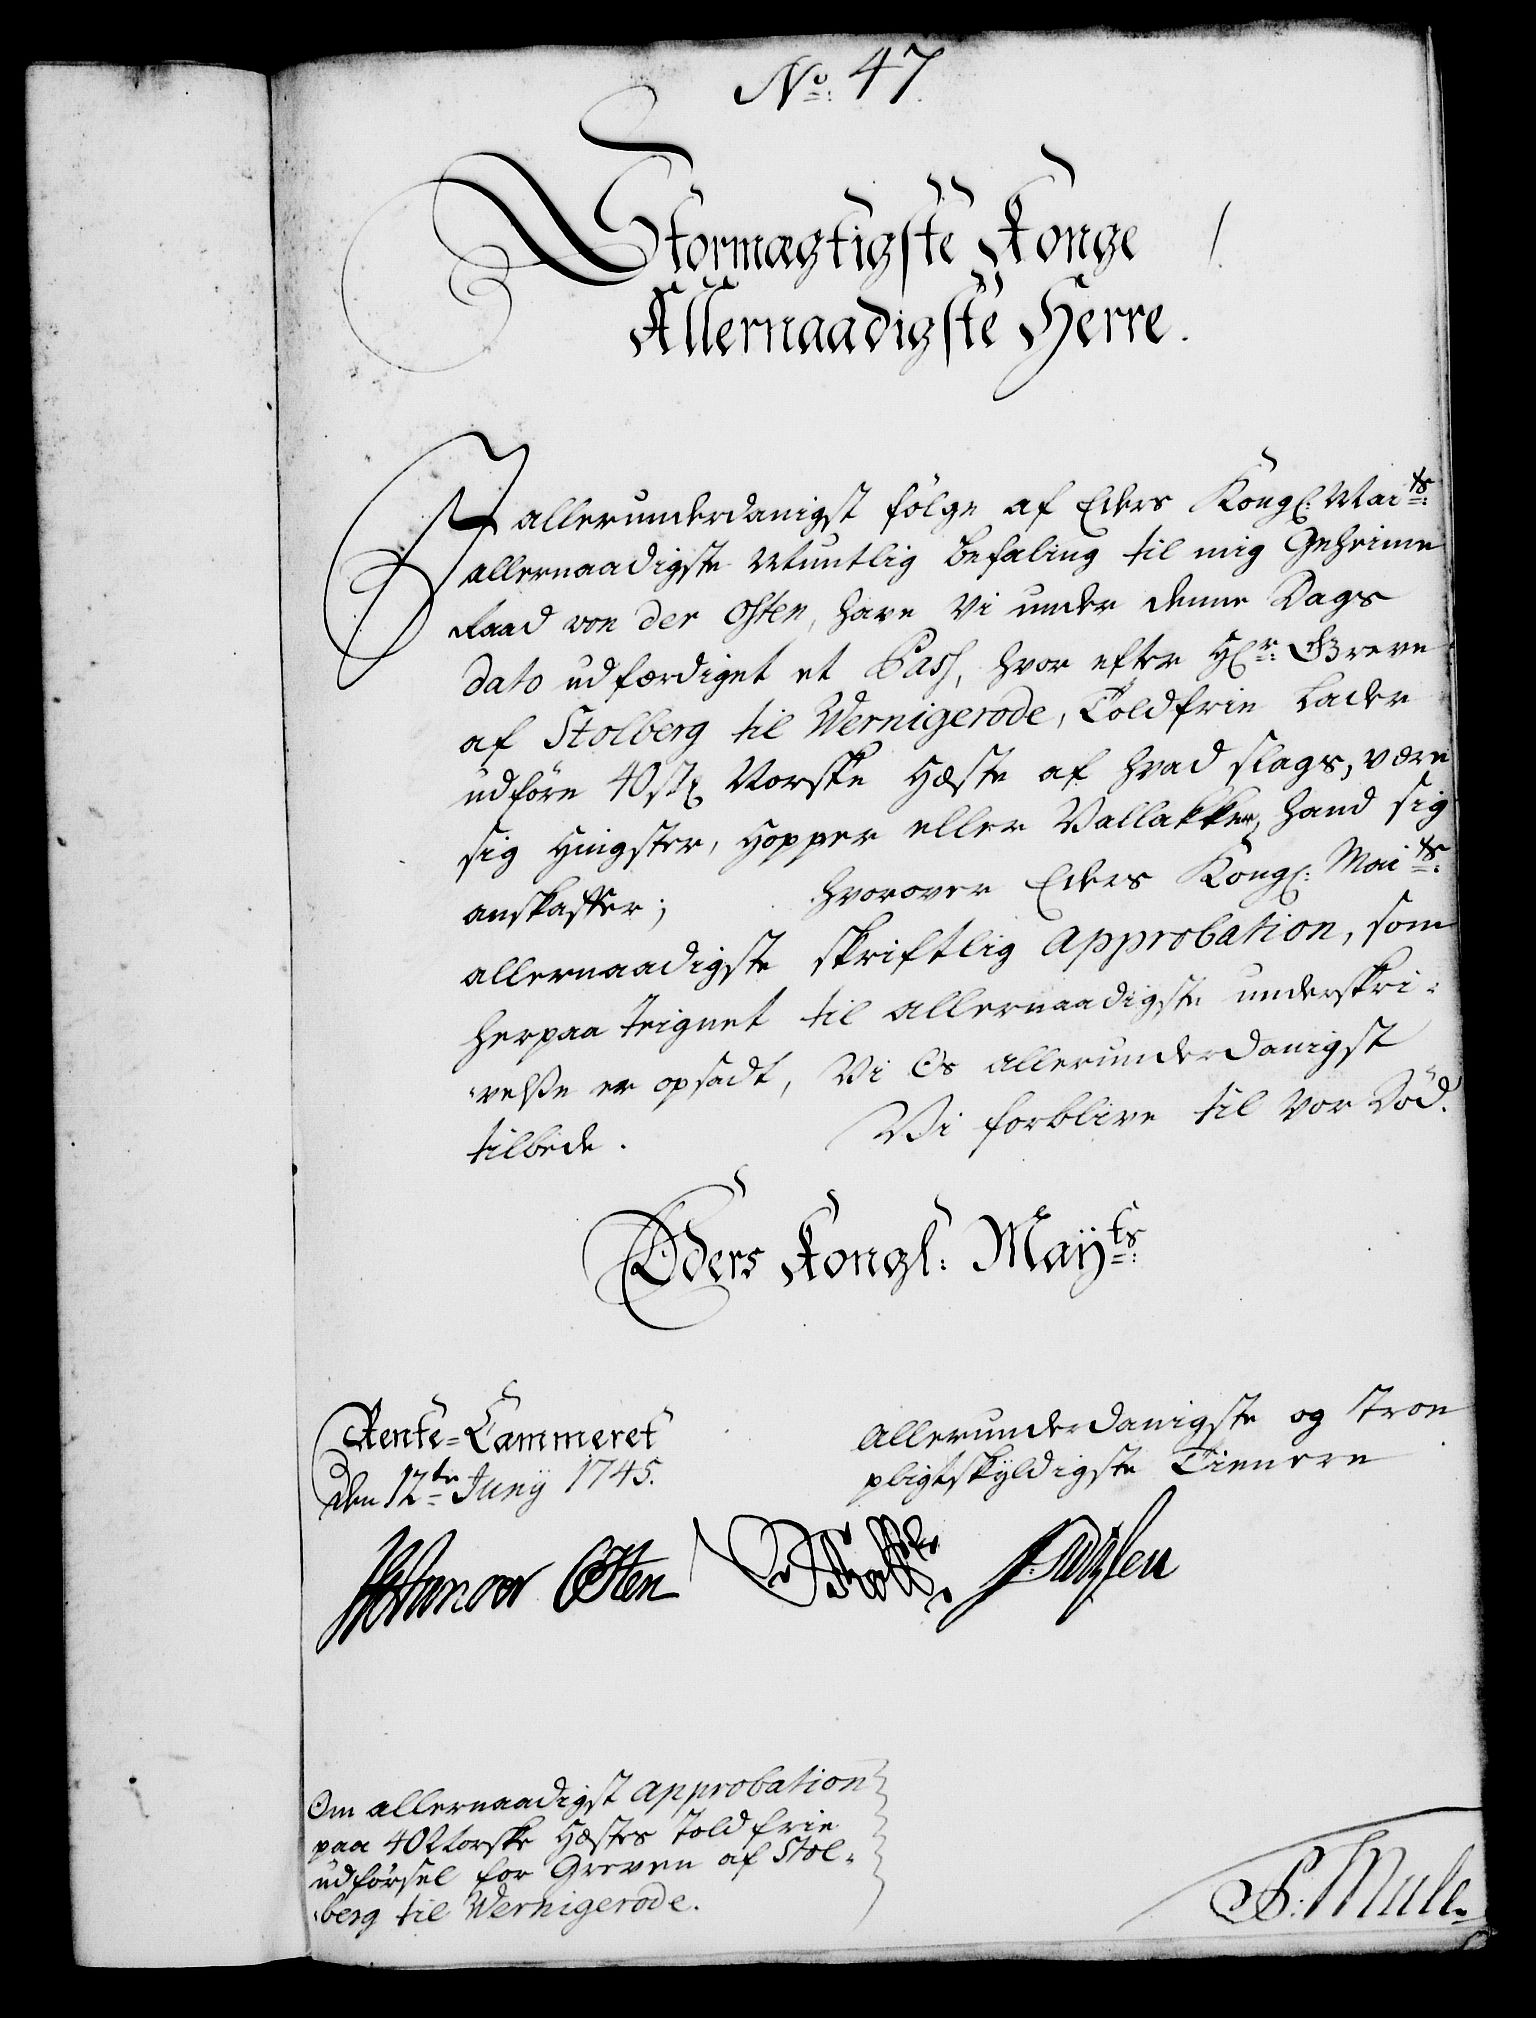 No: 47.
Stormægtigste Konge
Allernaadigste Herre.
J allerunderdanigst fölge af Eders Kongl: Maits:
allernaadigste Muntlig befaling til mig Geheime
Raad von der Osten, have Vi under denne Dags
dato udfærdiget et Pass, hvor efter Hr: Greve
af Stolberg til Wernigerode, Toldfrie lader
udföre 40 stk Norske Hæste af hvad slags, være
sig Hingster, Hopper eller Vallakker, hand sig
anskaffer; hvorover Eders Kongl: Maits:
allernaadigste skriftlig Approbation, som
herpaa teignet til allernaadigste underskri-
-velse er opsadt, Vi Os allerunderdanigst
tilbede. Vi forblive til vor Död.
Eders Kongl: Mayts:
Rente-Cammeret
den 12te Junÿ 1745.
Allerunderdanigste og troe
pligtskyldigste Tienere
von der Osten
Om allernaadigst Approbation
paa 40 Norske Hæstes Toldfrie
udförsel for Greven af Stol-
-berg til Wernigerode.
P. Mule.